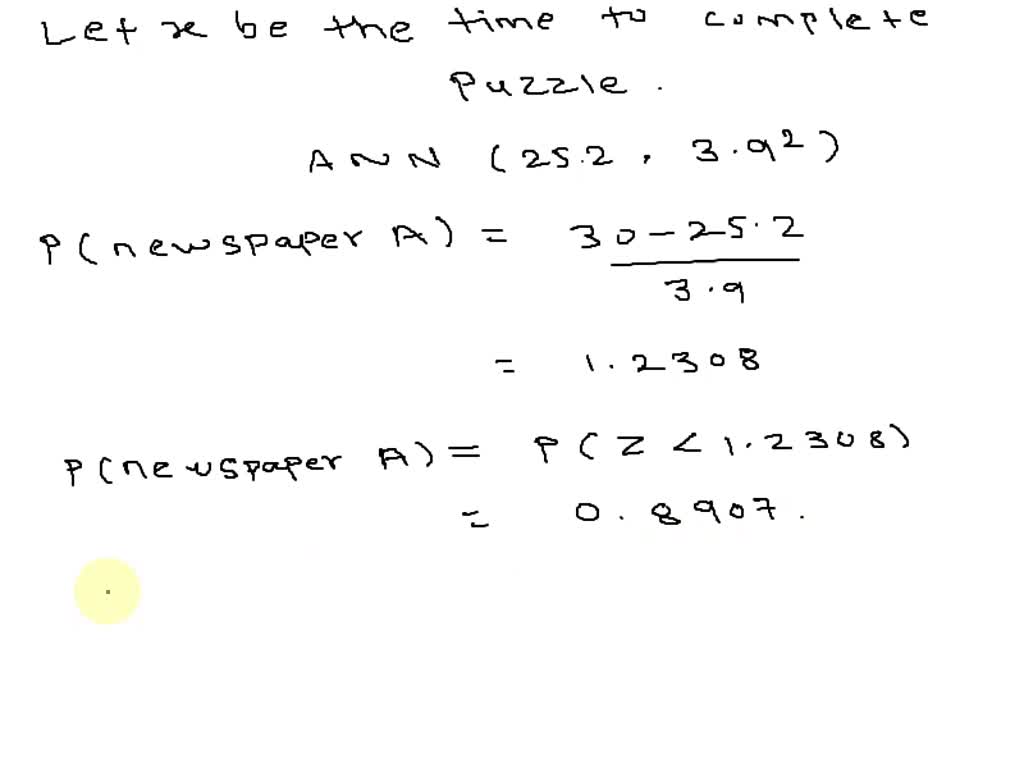 Let x be the time to complete
Puzzle.
A ~ N (25.2, 3.9²)
P(newspaper A) = 30 - 25.2
3.9
= 1.2308
P(newspaper A) = P(Z < 1.2308)
= 0.8907.